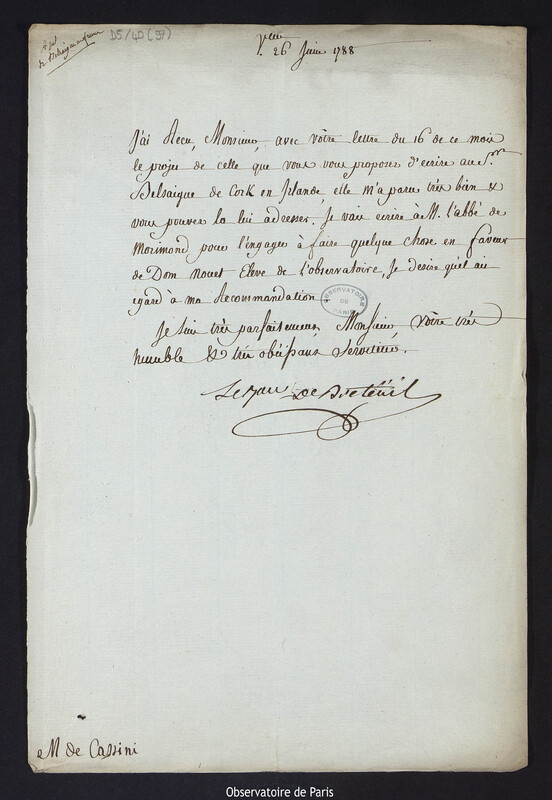 D5/40 (37)
V. 26 Juin 1788
J'ai Recu, Monsieur, avec vôtre lettre du 16 de ce mois
le projet de celle que vous vous proposez d'ecrire au S.r
Belsaique de Cork en Irlande, elle m'a paru très bien &
vous pouvez la lui adresser. Je vais ecrire à M. l'abbé de
Morimond pour l'engager à faire quelque chose en faveur
de Dom Nouet Eleve de l'observatoire, Je desire qu'il ait
egard à ma Recommandation.
OBSERVATOIRE
DE
PARIS
Je suis très parfaitement, Monsieur, vôtre très
humble & très obéissant Serviteur.
Le Bon De Breteüil
M de Cassini
Observatoire de Paris